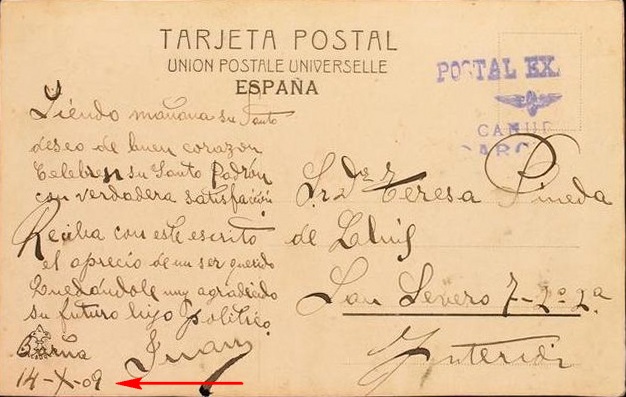 TARJETA POSTAL
UNION POSTALE UNIVERSELLE
ESPAÑA
POSTAL EX
Siendo mañana su Santo
deseo de buen corazon
celebren su Santo Padrón
con verdadera satisfacion.
Reciba con este escrito
el aprecio de un ser querido
Quedándole muy agradecido
su futuro hijo politico.
Juan
Barna
14-X-09
Sr Dª Teresa Pineda
de Lluis
San Severo 7-2º-2ª
Interior